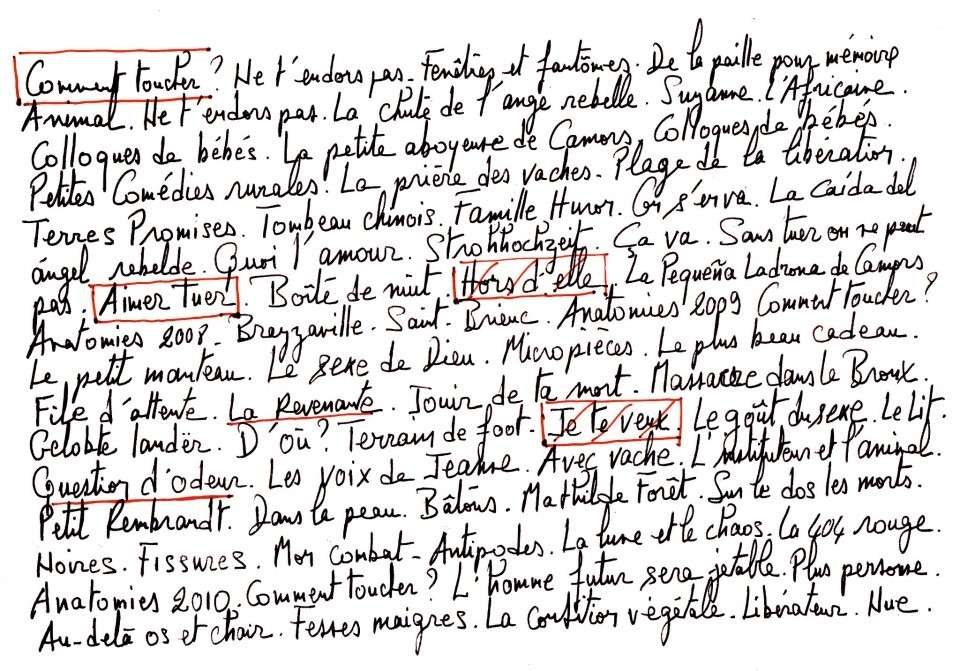 Comment toucher ? Ne t'endors pas. Fenêtres et fantômes. De la paille pour mémoire
Animal. Ne t'endors pas. La chute de l'ange rebelle. Suzanne. l'Africaine.
Colloques de bébés. La petite aboyeuse de Camors. Colloques de bébés.
Petites Comédies rurales. La prière des vaches. Plage de la libération.
Terres Promises. Tombeau chinois. Famille Huror. On s'en va. La caída del
ángel rebelde. Quoi l'amour. Strohhochzeit. Ça va. Sans tuer on ne peut
pas. Aimer Tuer. Boîte de nuit. Hors d'elle. La Pequeña Ladrona de Camors
Anatomies 2008. Brazzaville. Saint. Brieuc. Anatomies 2009 Comment toucher ?
Le petit manteau. Le sexe de Dieu. Micropièces. Le plus beau cadeau.
File d'attente. La Revenante. Jouir de ta mort. Massacre dans le Bronx.
Gelobte länder. D'où ? Terrain de foot. Je te veux. Le goût du sexe. Le Lit.
Question d'odeur. Les voix de Jeanne. Avec vache. L'instituteur et l'animal.
Petit Rembrandt. Dans la peau. Bâtons. Mathilde Forêt. Sur le dos les morts.
Noires. Fissures. Mon combat. Antipodes. La lune et le chaos. La 404 rouge.
Anatomies 2010. Comment toucher ? L'homme futur sera jetable. Plus personne.
Au-delà os et chair. Fesses maigres. La condition végétale. Libérateur. Nue.